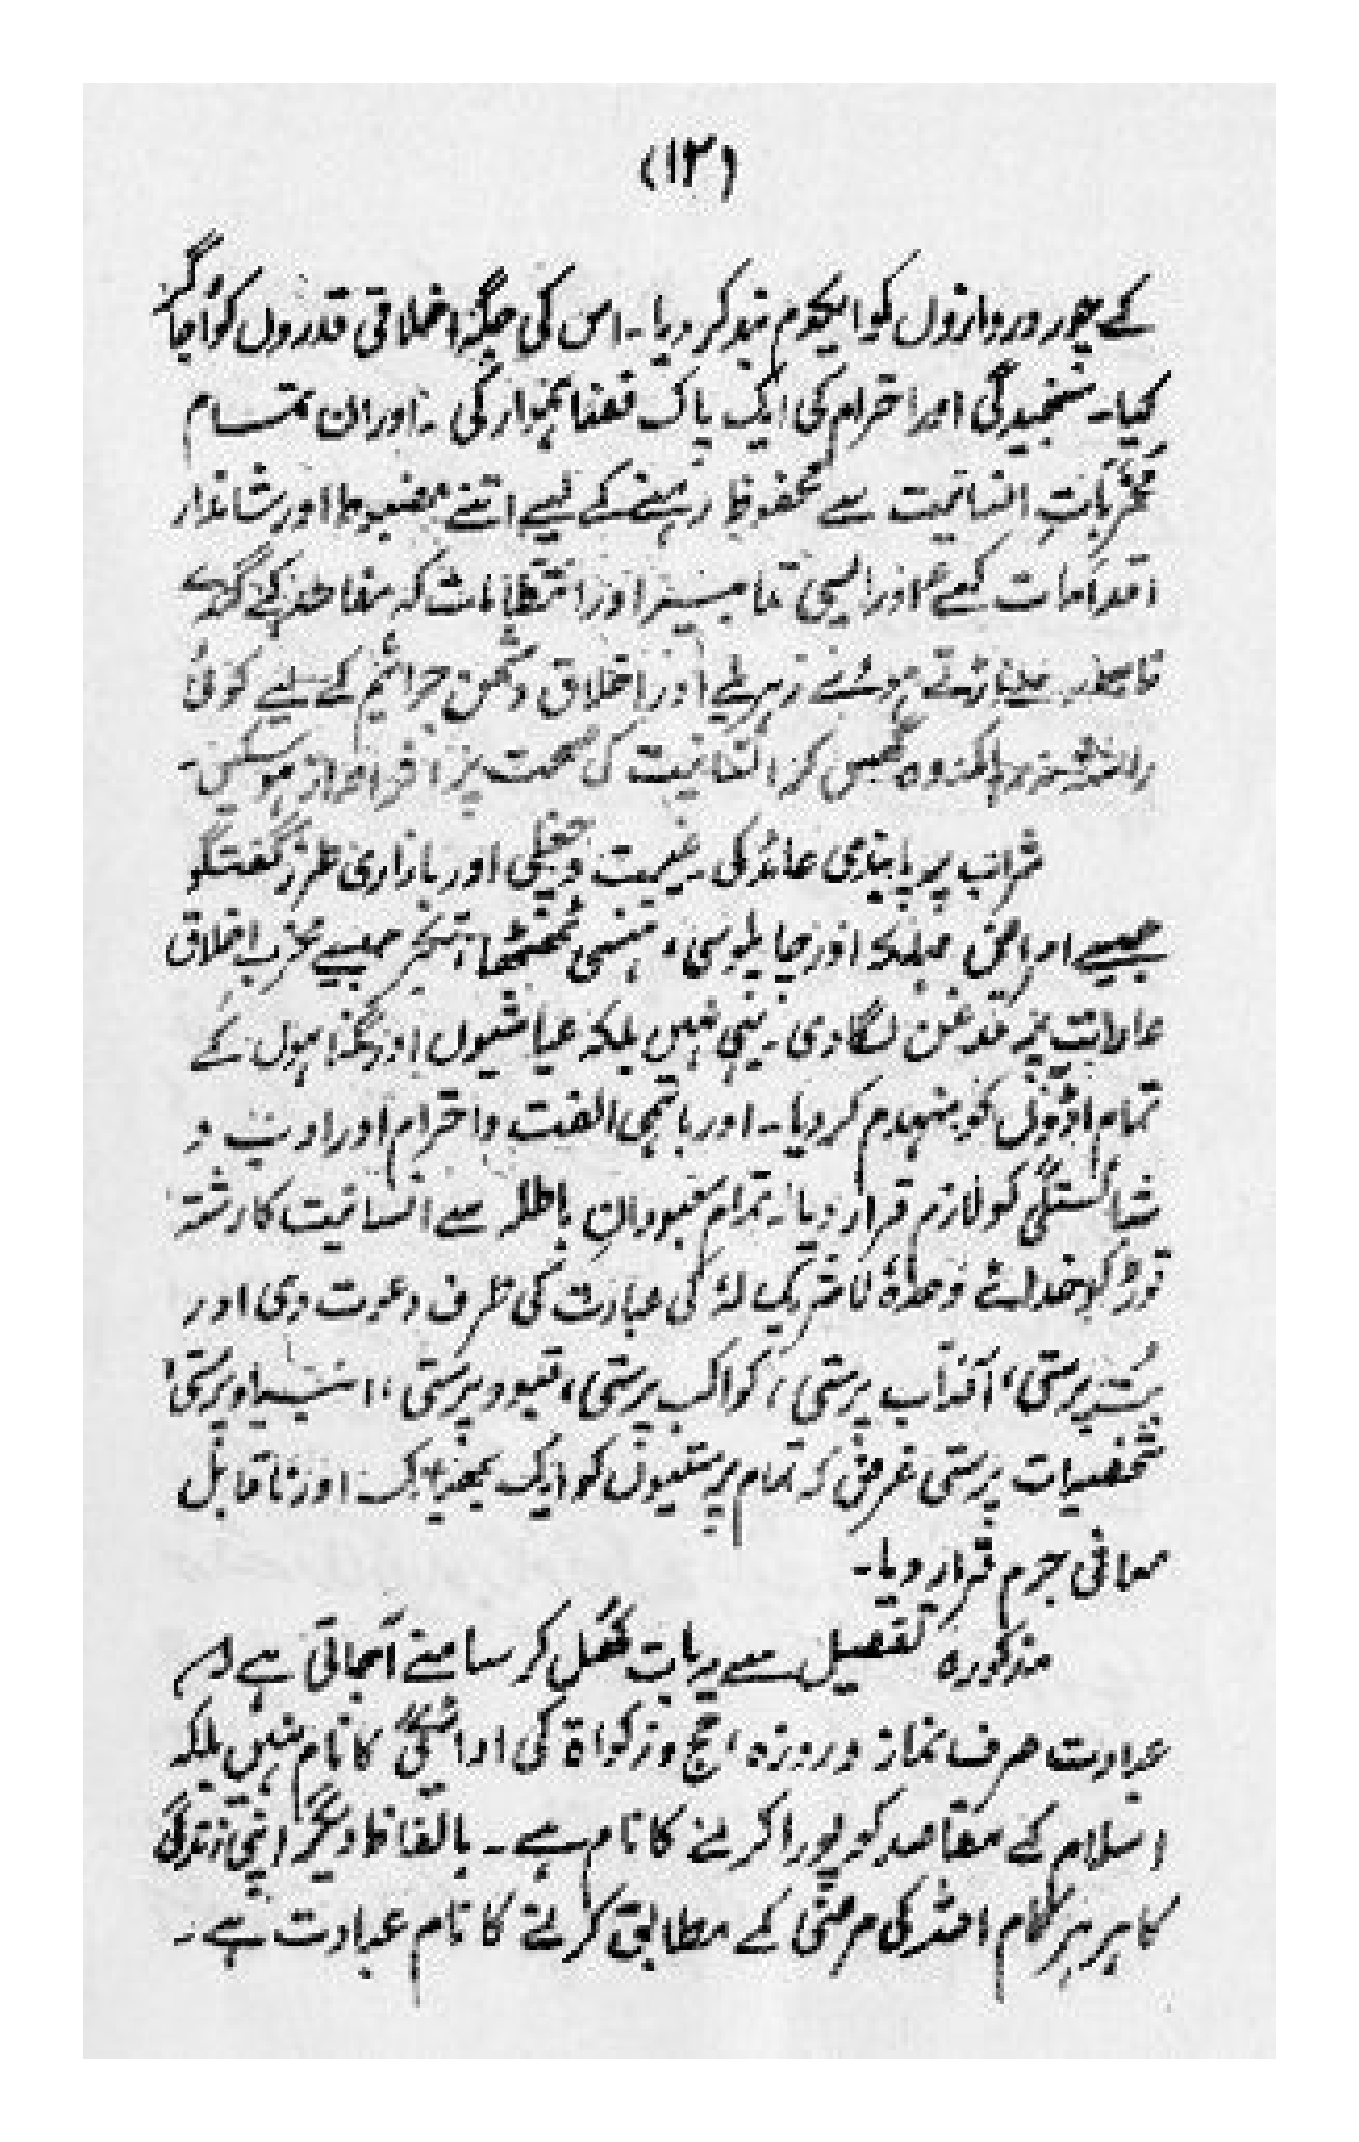 (۱۲)
کے چور دروازوں کو ایکدم بند کر دیا۔ اس کی جگہ اخلاقی قدروں کو اُجاگر
کیا۔ سنجیدگی اور احترام کی ایک پاک فضا ہموار کی۔ اور ان تمام
مخربات انسانیت سے محفوظ رہنے کے لیے اتنے مضبوط اور شاندار
اقدامات کئے اور ایسی تدابیر اور انتظامات کہ مفاسد کے گندے
ہوئے زہریلے اور اخلاق دشمن جراثیم کے لیے کوئی
نہ رہا کہ وہ گھس کر انسانیت کی صحت پر اثر انداز ہو سکیں۔
شراب پر پابندی عائد کی۔ غیبت و چغلی اور بازاری طرز گفتگو
جیسے امراض مہلکہ اور چاپلوسی، ہنسی ٹھٹھا، تمسخر جیسے مخرب اخلاق
عادات پر قدغن لگا دی۔ یہی نہیں بلکہ عیاشیوں اور گناہوں کے
تمام اڈوں کو منہدم کر دیا۔ اور باہمی الفت و احترام اور ادب و
شائستگی کو لازم قرار دیا۔ تمام معبودان باطلہ سے انسانیت کا رشتہ
توڑ کر خدائے وحدہٗ لاشریک لہٗ کی عبادت کی طرف دعوت دی اور
بُت پرستی، آفتاب پرستی، کواکب پرستی، قبور پرستی، انبیاء پرستی،
شخصیات پرستی غرض کہ تمام پرستیوں کو ایک بھیانک اور ناقابل
معافی جرم قرار دیا۔
مذکورہ تفصیل سے یہ بات کھُل کر سامنے آجاتی ہے کہ
عبادت صرف نماز و روزہ، حج و زکواۃ کی ادائیگی کا نام نہیں بلکہ
اسلام کے مقاصد کو پورا کرنے کا نام ہے۔ بالفاظ دیگر اپنی زندگی
کا ہر ہر کام اللہ کی مرضی کے مطابق کرنے کا نام عبادت ہے۔